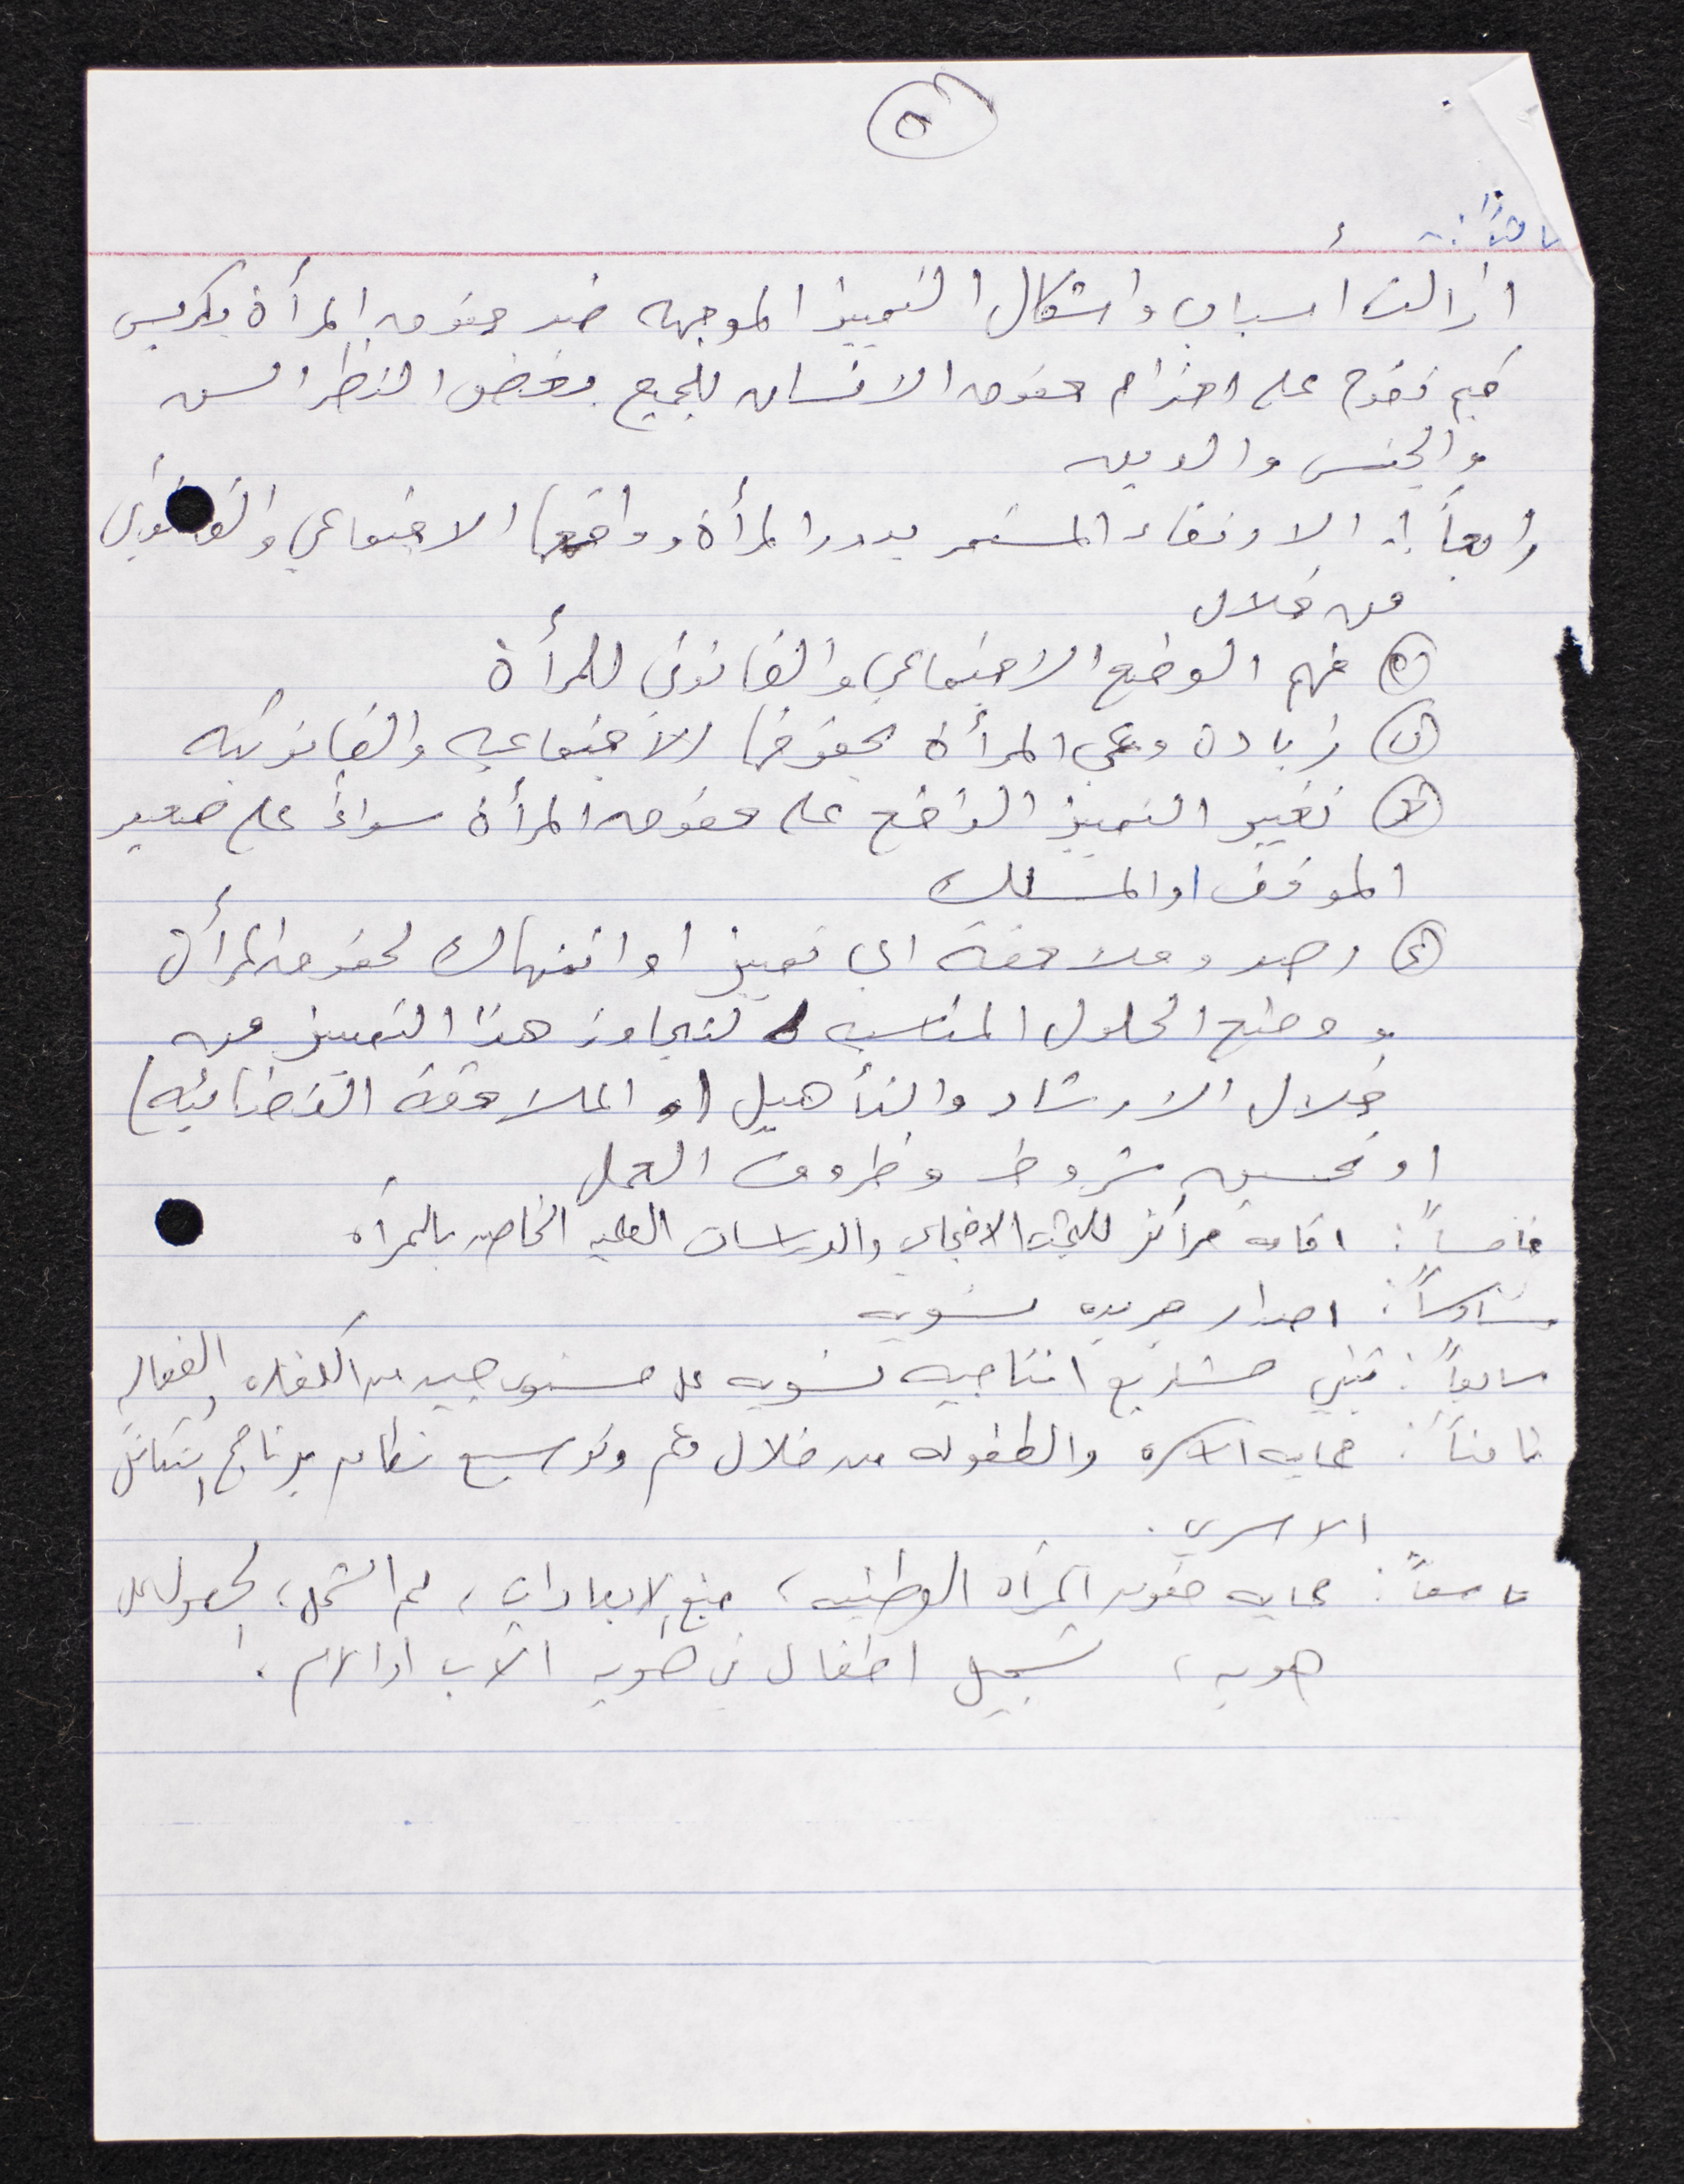 ٥
ازالت اسباب واشكال التمييز الموجهه ضد حقوق المرأة وتكريس
قيم تقوم على احترام حقوق الانسان للجميع بغض النظر السن
والجنس والدين
رابعاً :- الارتقاء المستمر بدور المرأة وواقعها الاجتماعي والقانوني
من خلال
فهم الوضع الاجتماعي والقانوني للمرأة
زيادة وعي المرأة بحقوقها الاجتماعيه والقانونيه
تغيير التمييز الواقع على حقوق المرأة سواءً على صعيد
الموقف او المسلك
رصد وملاحقة اي تمييز او انتهاك لحقوق المرأة
ووضع الحلول المناسبه لتجاوز هذا التمييز من
خلال الارشاد والتأهيل (او الملاحقة القضائيه)
او تحسين شروط وظروف العمل
خامساً : اقامه مراكز للبحث الاجتماعي والدراسات العلميه الخاصه بالمرأه
سادساً : اصدار جريده نسويه
سابعاً : تبني مشاريع انتاجيه نسويه على مستوى جيد من الكفاءه والفعاليه
ثامناً : حمايه الاسره والطفوله من خلال دعم وتوسيع نطاق برنامج التكافل
الاسري .
تاسعاً : حمايه حقوق المرأه الوطنيه ، منع الابعادات ، لم الشمل ، الحصول على
هويه ، تسجيل اطفال في هويه الأب او الام .